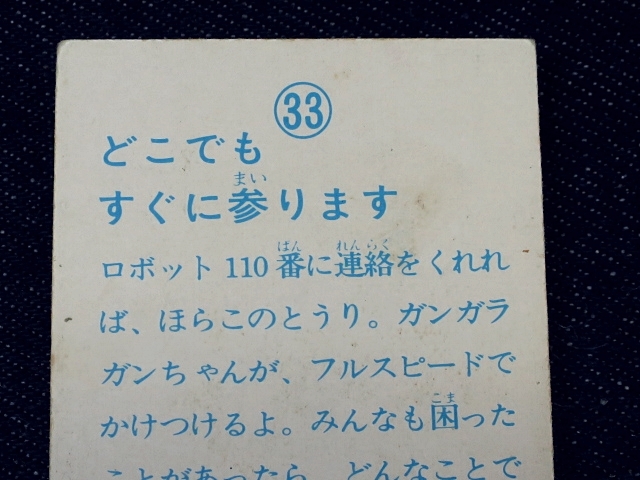 33
どこでも
すぐに参ります
ロボット110番に連絡をくれれ
ば、ほらこのとうり。ガンガラ
ガンちゃんが、フルスピードで
かけつけるよ。みんなも困った
ことがあったら、どんなことで